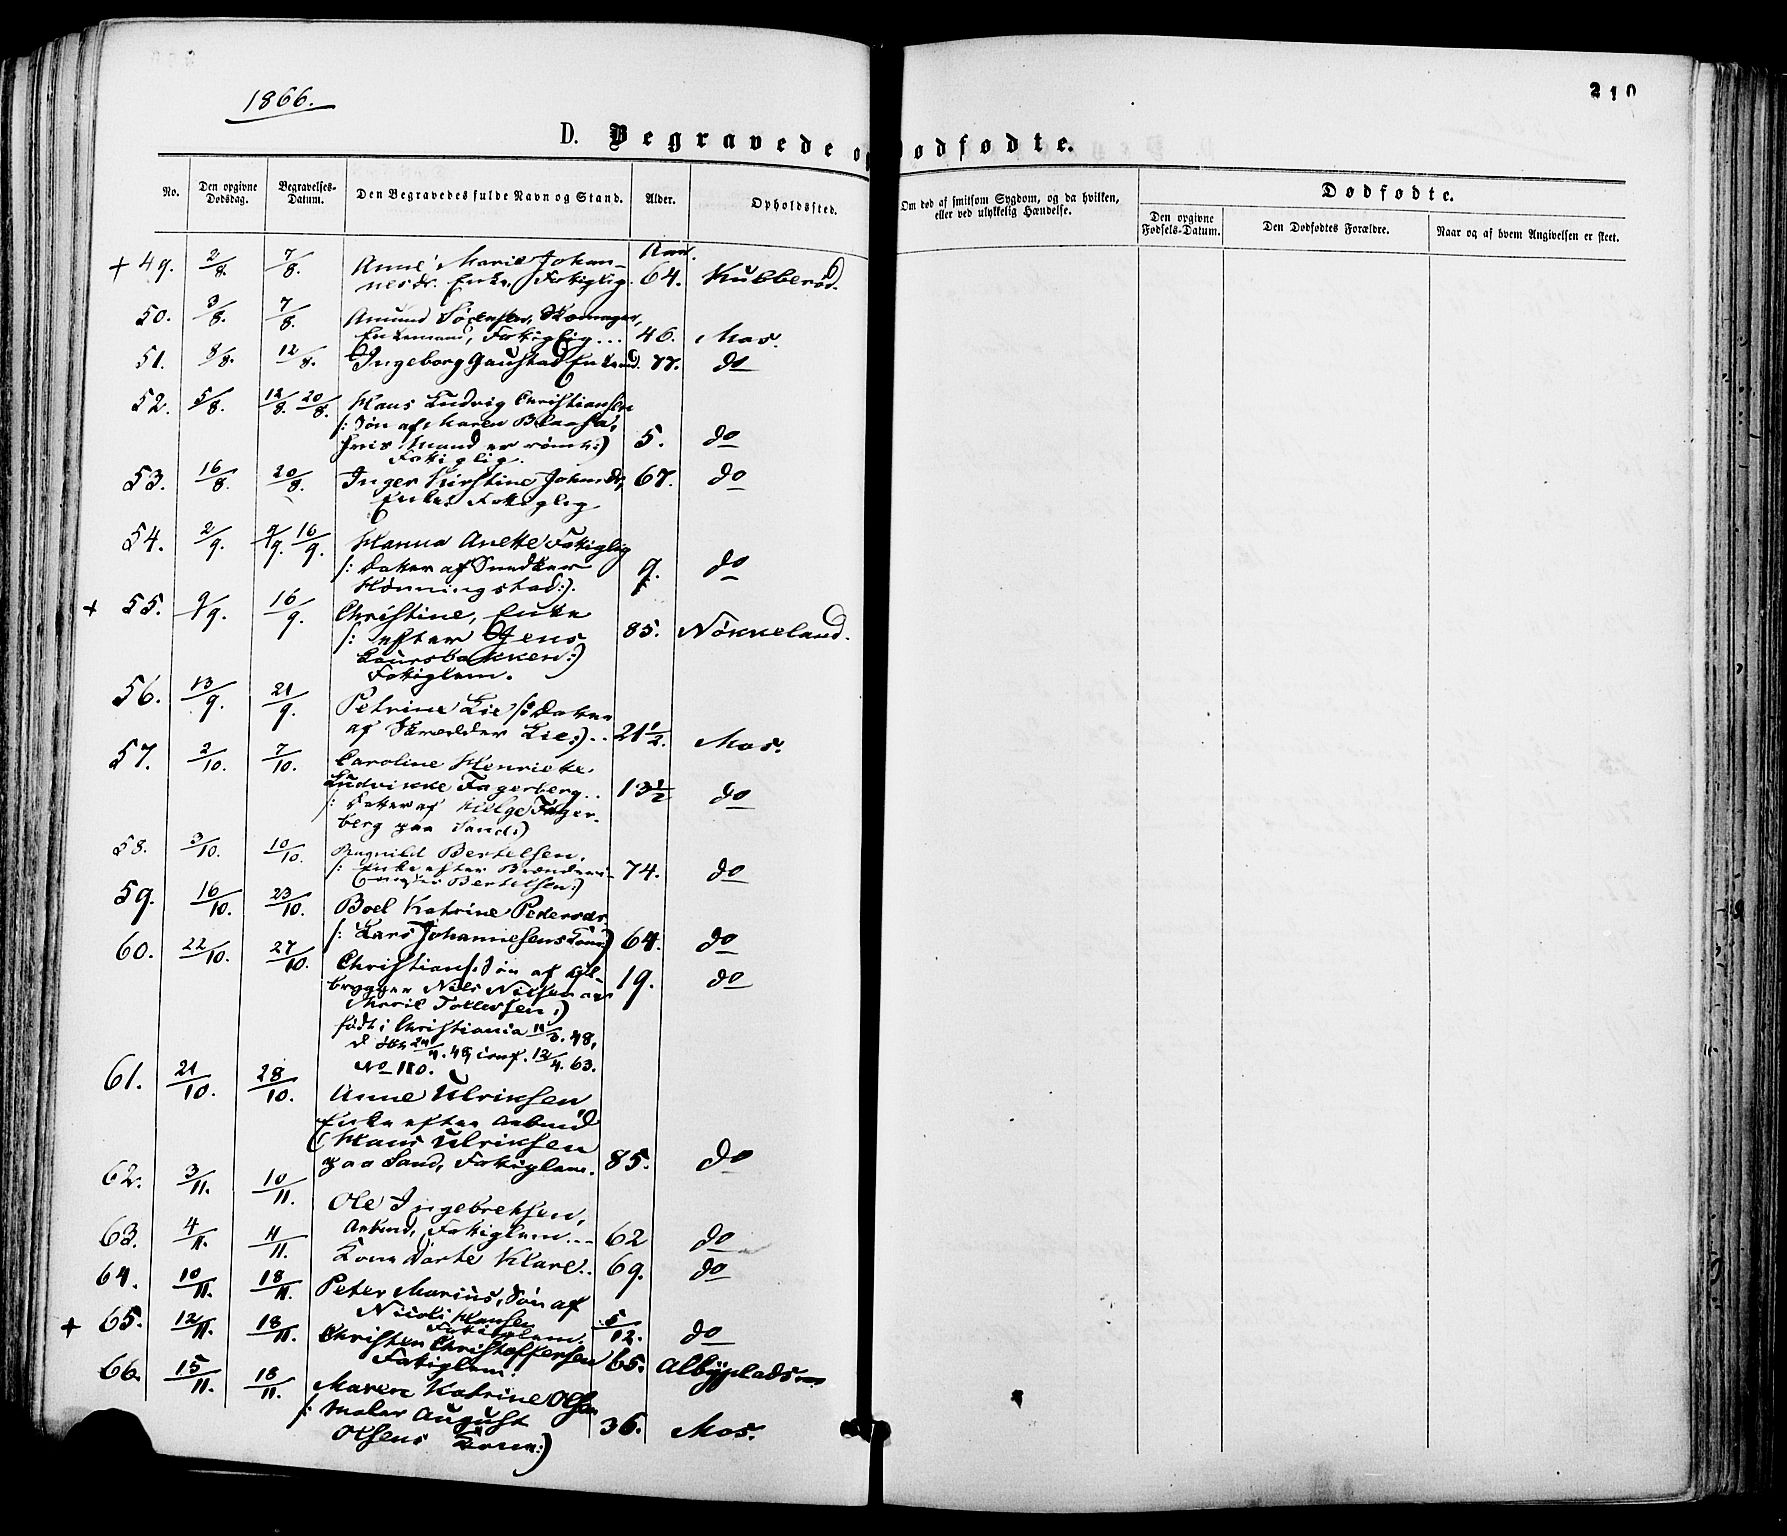 1866.
210
D. Begravede o
Dødfødte.
No.
Den opgivne Dødsdag.
Begravelses-Datum.
Den Begravedes fulde Navn og Stand.
Alder.
Opholdssted.
Om død af smitsom Sygdom, og da hvilken, eller ved ulykkelig Hændelse.
Dødfødte.
Den opgivne Fødsels-Datum.
Den Dødfødtes Forældre.
Naar og af hvem Angivelsen er skeet.
Aar.
+ 49. 2/8. 7/8. Anne Marie Johan-
nesdr. Enke, Fattiglig. 64. Kubberød.
50. 3/8. 7/8. Amund Sørensen, Skomager,
Enkemand, Fattiglig... 46. Mos.
51. 8/8. 12/8. Ingeborg Gaustad Enke 77. do
52. 5/8. 12/8. 20/8. Hans Ludvig Christiansen
/: Søn af Maren
hvis Mand er rømt:) 5. do
Fattiglig.
53. 16/8. 20/8. Inger Kirstine Johansdr, 67. do
Enke, Fattiglig
54. 2/9. 9/9. 16/9. Hanna Anette Fattiglig
/: Datter af Snedker 9. do
Hønningstad:).
+ 55. 9/9. 16/9. Christine, Enke
/: efter Jens 85. Nøkkeland.
Laursbakken:)
Fattiglem.
56. 13/9. 21/9. Petrine Lie /: Datter
af Skrædder Lie:).. 21 1/2. Mos.
57. 2/10. 7/10. Caroline Henriette
Ludvikke Fagerberg.. 13 1/2 do
/: Datter af Helge Fager-
berg paa Sand:)
58. 3/10. 10/10. Ragnild Bertelsen.
/: Enke efter Brænderi- 74. do
mester Bertelsen:)
59. 16/10. 23/10. Boel Katrine Pedersdr.
/: Lars Johannesens Kone:) 64. do
60. 22/10. 27/10. Christian, Søn af Øl-
brygger Nils Nilsen og 19. do
Marie Tollefsen:)
født i Christiania 11/3. 48,
d. 24/4. 48, conf. 12/4. 63.
No 110.
61. 21/10. 28/10. Anne Ulriksen
Enke efter Arbmd
Hans Ulriksen
paa Sand, Fattiglem. 85. do
62. 3/11. 10/11. Ole Ingebretsen,
Arbmd, Fattiglem... 62 do
63. 4/11. 11/11. Kone Dorte Klare.. 69. do
64. 10/11. 18/11. Peter Marius, Søn af
Nicoli Hansen 5/12. do
Fattiglem.
+ 65. 12/11. 18/11. Christen Christoffersen
Fattiglem. 65. Albyplads
66. 15/11. 18/11. Maren Katrine Olsen
/: Maler August 36. Mos.
Olsens Kone:)